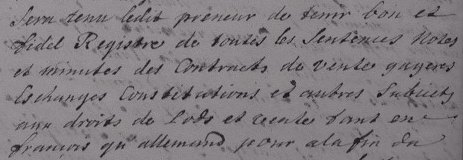 Sera tenu ledit preneur de tenir bon et
fidel Registre de toutes les Sentences Notes
et minutes des Contracts de vente gageres
Eschanges Constitutions et autres Subiects
aux droits de Lods et vente tant en
françois qu'allemand pour a la fin du